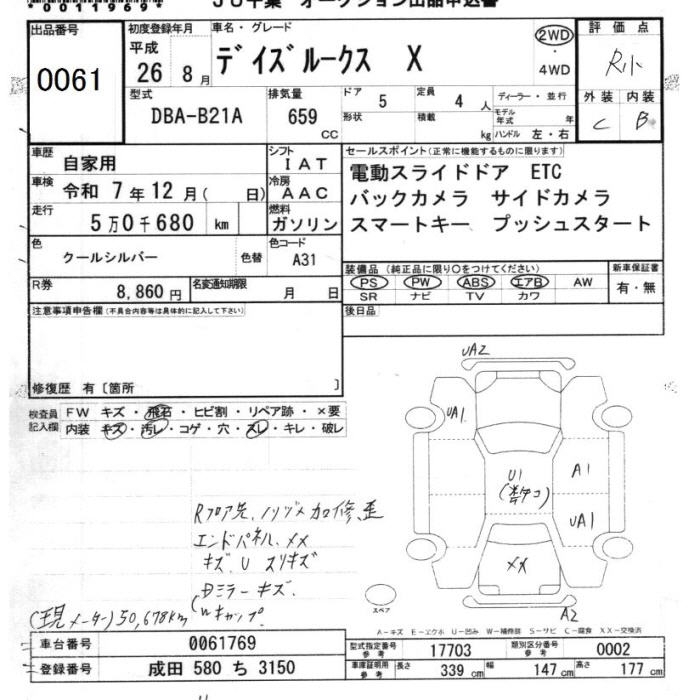 *0011969*
JU千葉 オークション出品申込書
出品番号
0061
初度登録年月
平成
26 8月
車名・グレード
デイズルークス X
2WD
・
4WD
評価点
R小
外装 内装
C B
型式
DBA-B21A
排気量
659
CC
ドア 5
定員 4人
ディーラー・並行
形状
積載 kg
モデル年式 年
ハンドル 左・右
車歴
自家用
シフト
IAT
車検
令和 7年12月( 日)
冷房
AAC
走行
5万0千680 km
燃料
ガソリン
セールスポイント(正常に機能するものに限ります)
電動スライドドア ETC
バックカメラ サイドカメラ
スマートキー プッシュスタート
色
クールシルバー
色替
色コード
A31
装備品(純正品に限り○をつけてください)
PS PW ABS エアB AW
SR ナビ TV カワ
新車保証書
有・無
R券
8,860円
名変通知期限
月 日
後日品
注意事項申告欄(不具合内容等は具体的に記入して下さい)
修復歴 有〔箇所 〕
検査員
記入欄
FW キズ・飛石・ヒビ割・リペア跡・×要
内装 キズ・汚レ・コゲ・穴・スレ・キレ・破レ
UA2
UA1
U1
A1
UA1
XX
A2
Rフロア先、
加修歪
エンドパネル、XX
キズ、U スリキズ
ミラーキズ、
キャップ、
(現メーター)50,678km
スペア
A-キズ E-エクボ U-凹み W-補修跡 S-サビ C-腐食 XX-交換済
車台番号
0061769
型式指定番号
参考
17703
類別区分番号
参考
0002
登録番号
成田 580 ち 3150
車庫証明用
参考
長さ 339 cm
幅 147 cm
高さ 177 cm